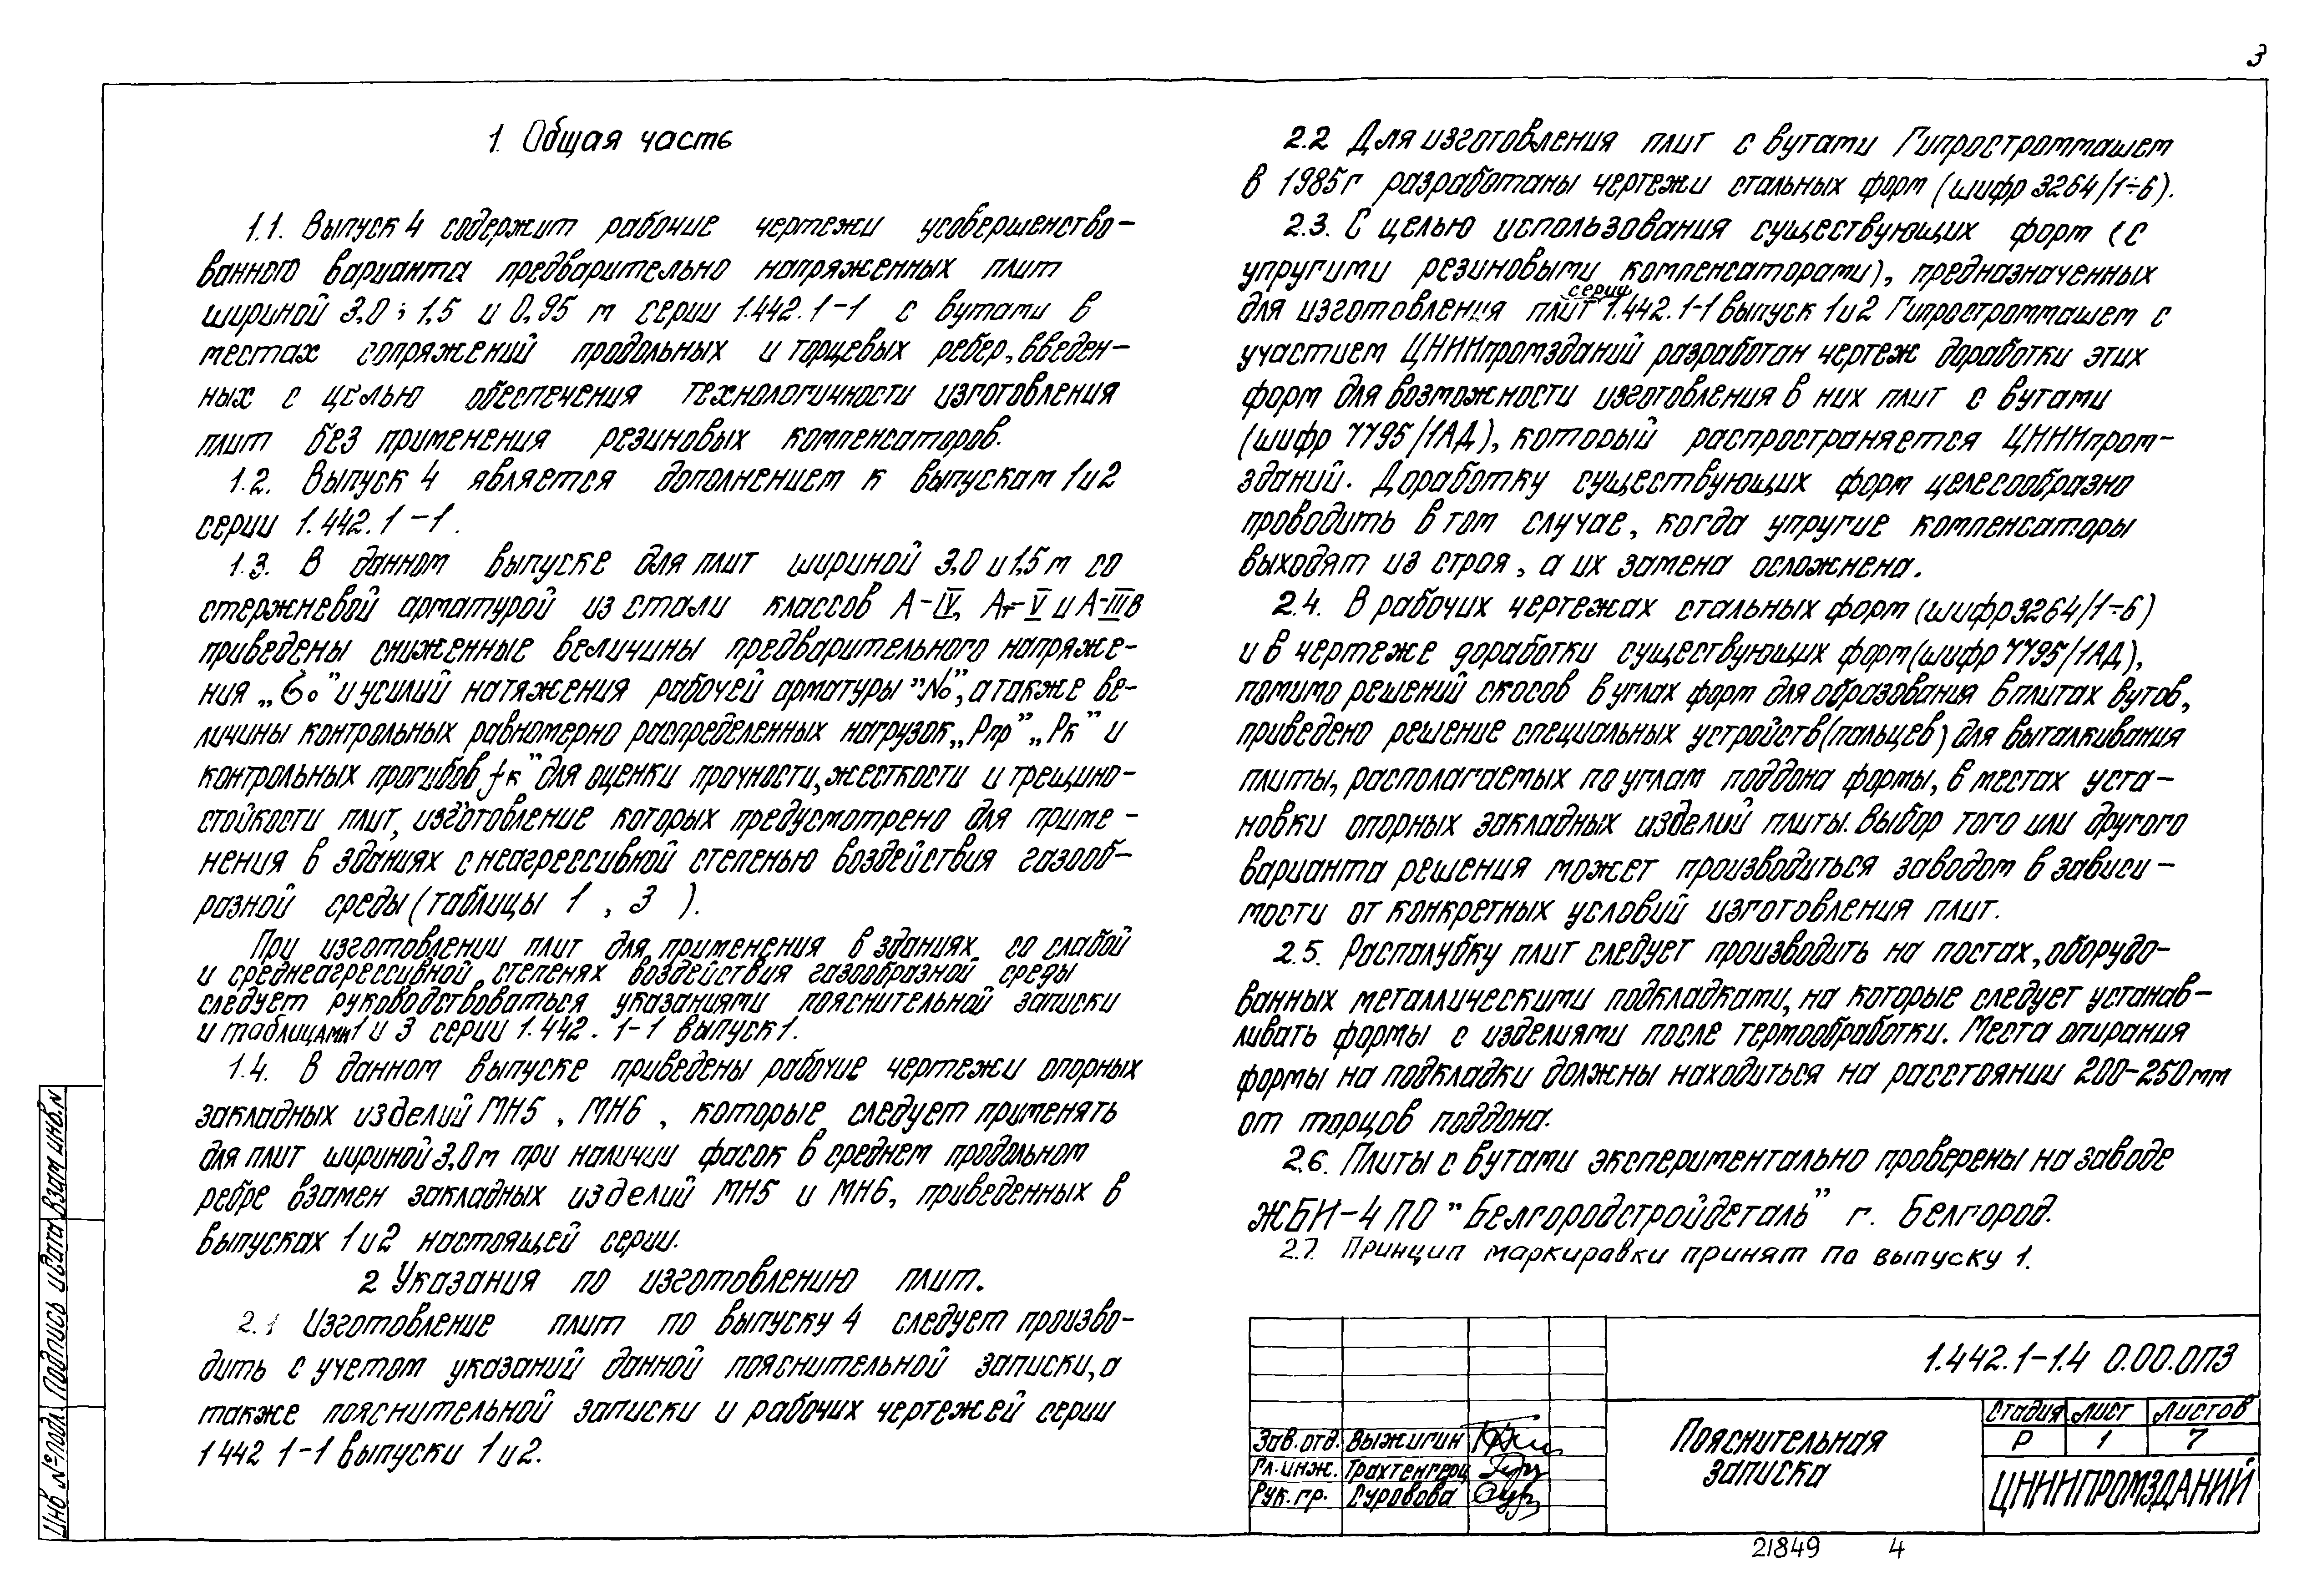 3
1. Общая часть
1.1. Выпуск 4 содержит рабочие чертежи усовершенство-
ванного варианта предварительно напряженных плит
шириной 3,0; 1,5 и 0,95 м серии 1.442.1-1 с вутами в
местах сопряжений продольных и торцевых ребер, введен-
ных с целью обеспечения технологичности изготовления
плит без применения резиновых компенсаторов.
1.2. Выпуск 4 является дополнением к выпускам 1 и 2
серии 1.442.1-1.
1.3. В данном выпуске для плит шириной 3,0 и 1,5 м со
стержневой арматурой из стали классов А-IV, Ат-V и А-IIIв
приведены сниженные величины предварительного напряже-
ния „бо" и усилий натяжения рабочей арматуры "No", а также ве-
личины контрольных равномерно распределенных нагрузок „Рпр" „Рк" и
контрольных прогибов fк" для оценки прочности, жесткости и трещино-
стойкости плит, изготовление которых предусмотрено для приме-
нения в зданиях с неагрессивной степенью воздействия газооб-
разной среды (таблицы 1 , 3 ).
При изготовлении плит для применения в зданиях со слабой
и среднеагрессивной степенях воздействия газообразной среды
следует руководствоваться указаниями пояснительной записки
и таблицами 1 и 3 серии 1.442.1-1 выпуск 1.
1.4. В данном выпуске приведены рабочие чертежи опорных
закладных изделий МН5 , МН6 , которые следует применять
для плит шириной 3,0 м при наличии фасок в среднем продольном
ребре взамен закладных изделий МН5 и МН6, приведенных в
выпусках 1 и 2 настоящей серии.
2 Указания по изготовлению плит.
2.1 Изготовление плит по выпуску 4 следует произво-
дить с учетом указаний данной пояснительной записки, а
также пояснительной записки и рабочих чертежей серии
1 442 1-1 выпуски 1 и 2.
2.2 Для изготовления плит с вутами Гипростроммашем
в 1985г разработаны чертежи стальных форм (шифр 3264/1÷6).
2.3. С целью использования существующих форм (с
упругими резиновыми компенсаторами), предназначенных
для изготовления плит серии 1.442.1-1 выпуск 1 и 2 Гипростроммашем с
участием ЦНИИпромзданий разработан чертеж доработки этих
форм для возможности изготовления в них плит с вутами
(шифр 7795/1АД), который распространяется ЦНИИпром-
зданий. Доработку существующих форм целесообразно
проводить в том случае, когда упругие компенсаторы
выходят из строя, а их замена осложнена.
2.4. В рабочих чертежах стальных форм (шифр 3264/1÷6)
и в чертеже доработки существующих форм (шифр 7795/1АД),
помимо решений скосов в углах форм для образования в плитах вутов,
приведено решение специальных устройств (пальцев) для выталкивания
плиты, располагаемых по углам поддона формы, в местах уста-
новки опорных закладных изделий плиты. Выбор того или другого
варианта решения может производиться заводом в зависи-
мости от конкретных условий изготовления плит.
2.5. Распалубку плит следует производить на постах, оборудо-
ванных металлическими подкладками, на которые следует устанав-
ливать формы с изделиями после термообработки. Места опирания
формы на подкладки должны находиться на расстоянии 200-250мм
от торцов поддона.
2.6. Плиты с вутами экспериментально проверены на заводе
ЖБИ-4 ПО "Белгородстройдеталь" г. Белгород.
2.7. Принцип маркировки принят по выпуску 1.
1.442.1-1.4 0.00.0ПЗ
Зав.отд. Выжигин
Гл.инж. Трахтенгерц
Рук.гр. Суровова
Пояснительная
записка
Стадия Лист Листов
Р 1 7
ЦНИИПРОМЗДАНИЙ
Инв №подл. Подпись и дата Взам инв.N
21849 4